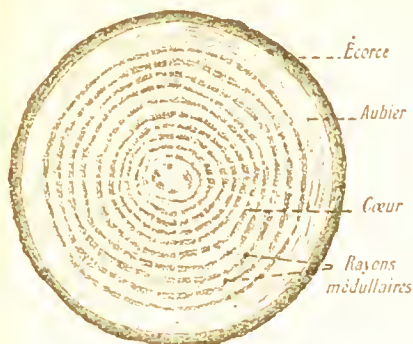 Écorce
Aubier
Cœur
Rayons
médullaires